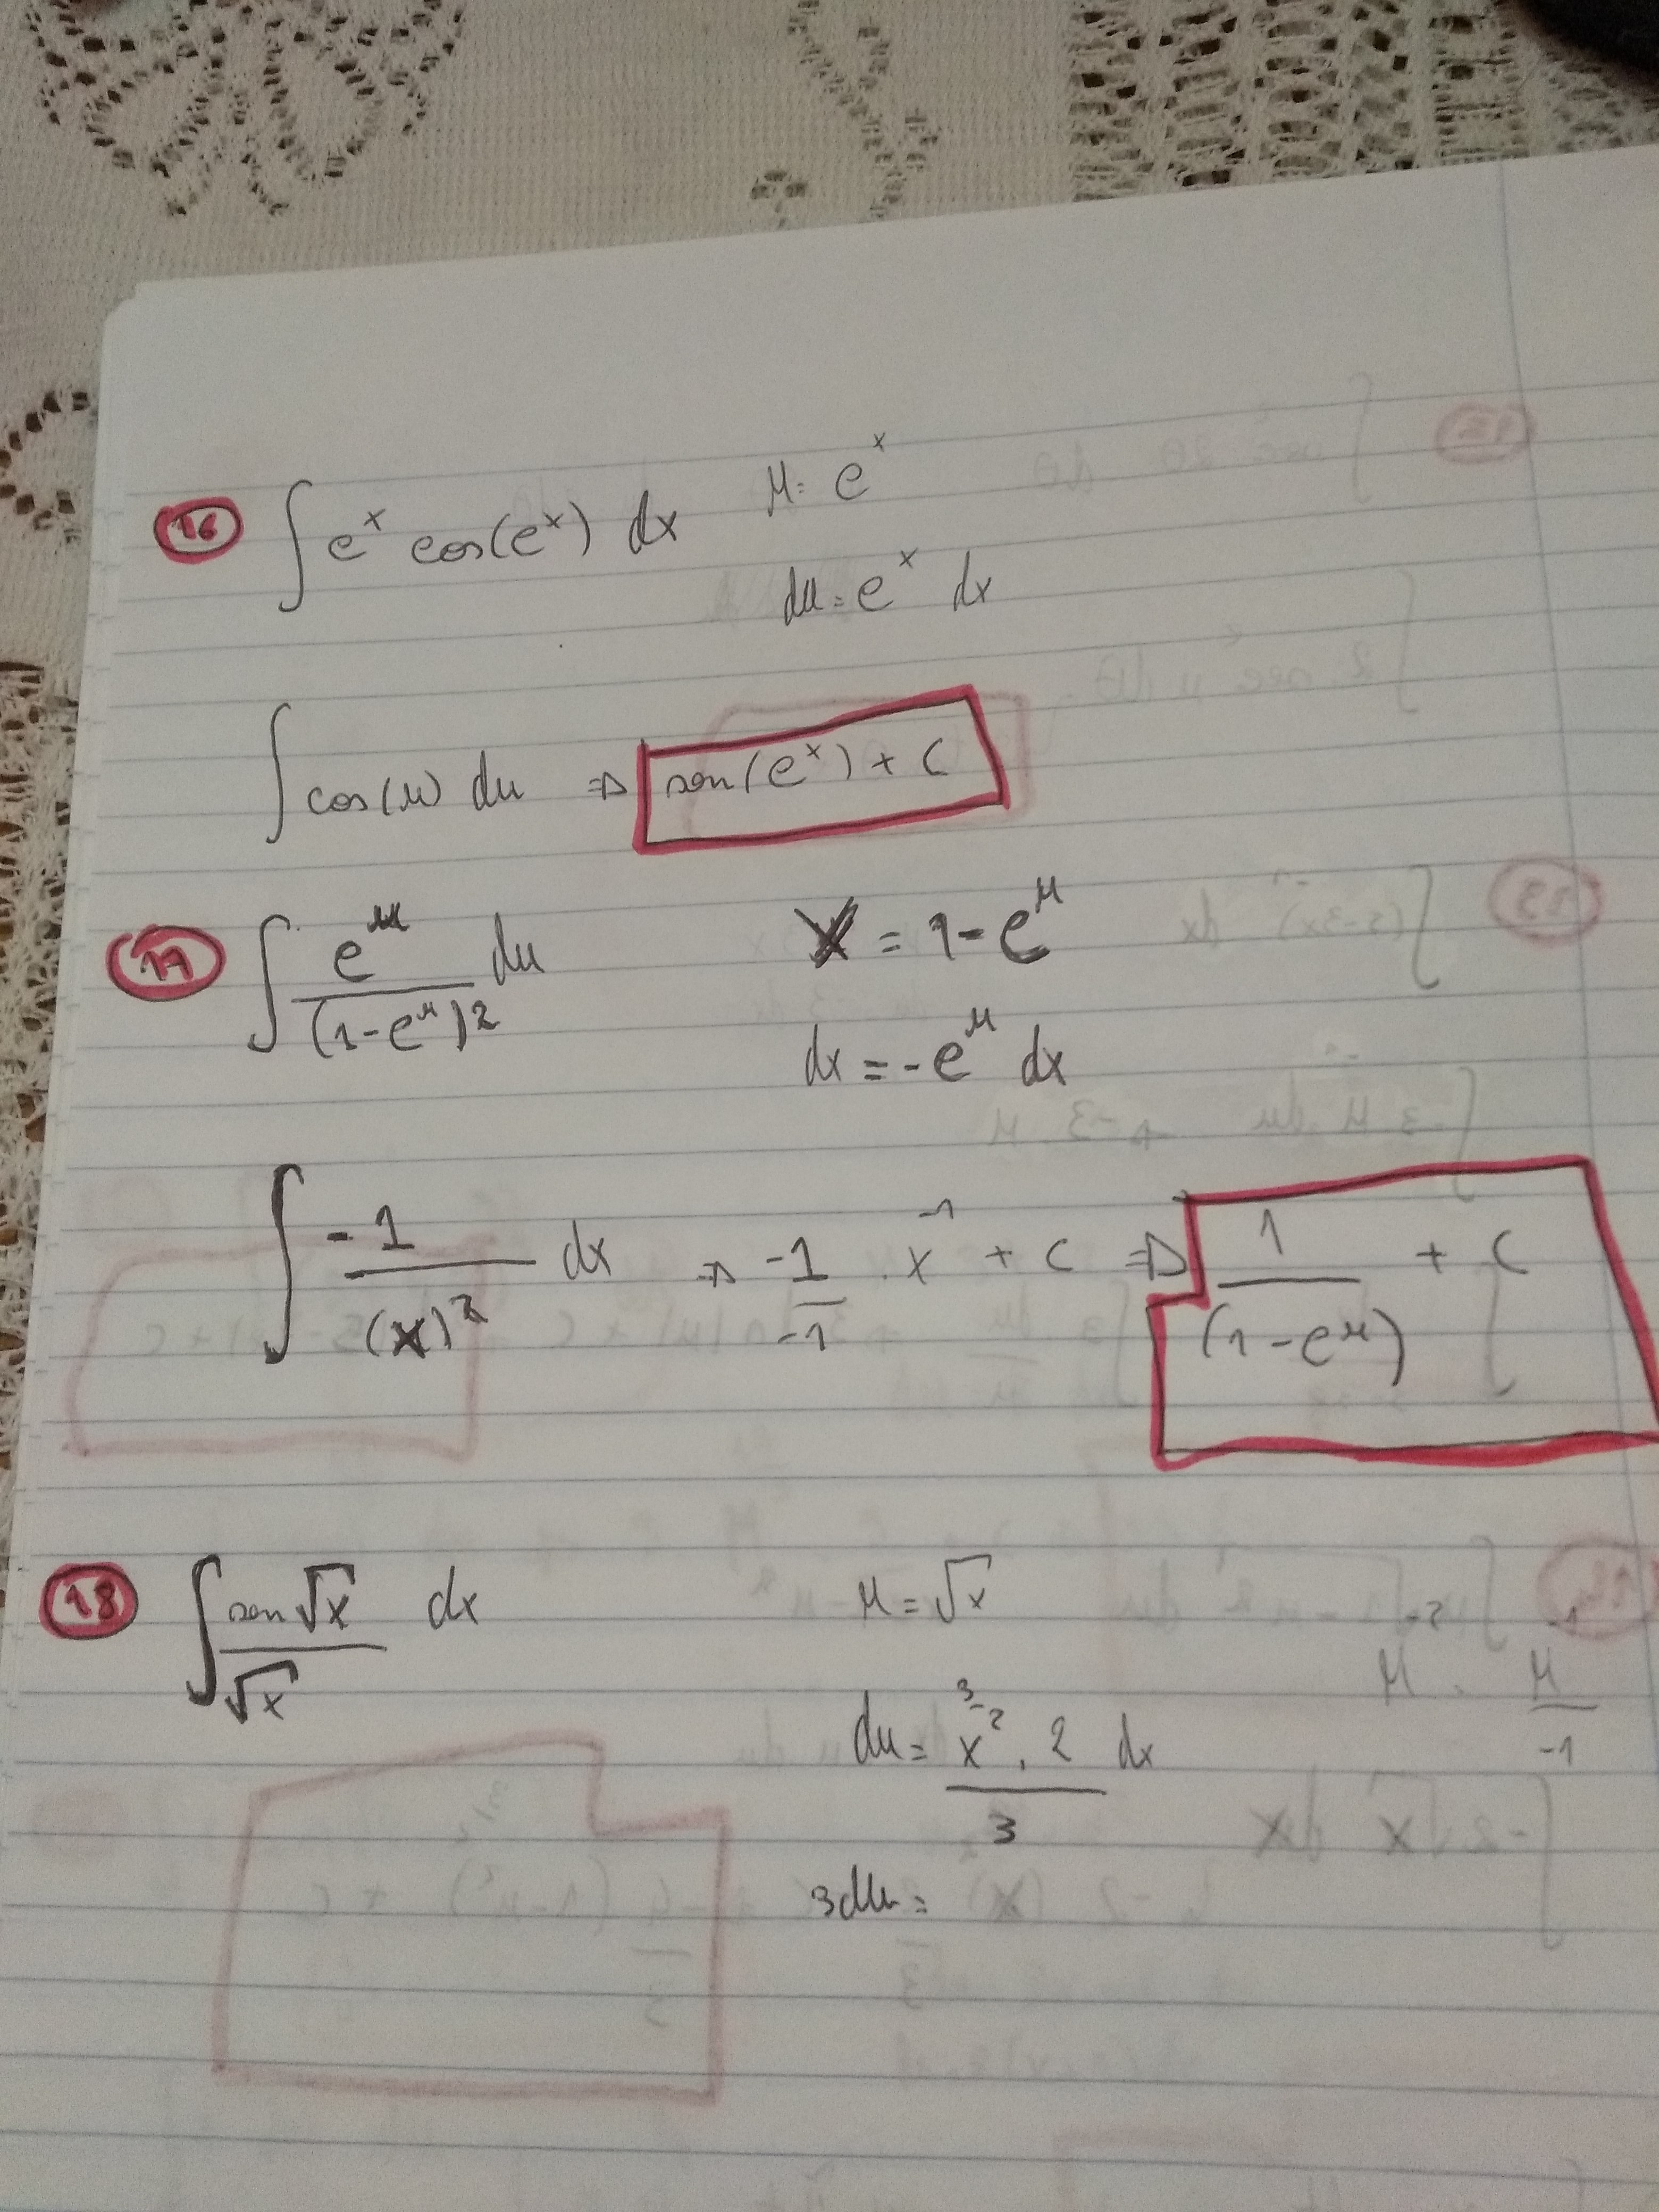 16 ∫ e^x cos(e^x) dx μ = e^x
du = e^x dx
∫ cos(μ) du ⇒ sen(e^x) + C
17 ∫ e^μ / (1-e^μ)^2 du x = 1-e^μ
dx = -e^μ dx
∫ -1 / (x)^2 dx → -1/-1 . x^-1 + C ⇒ 1 / (1-e^μ) + C
18 ∫ sen √x / √x dx μ = √x
du = x^(3/2) . 2 / 3 dx
3du =